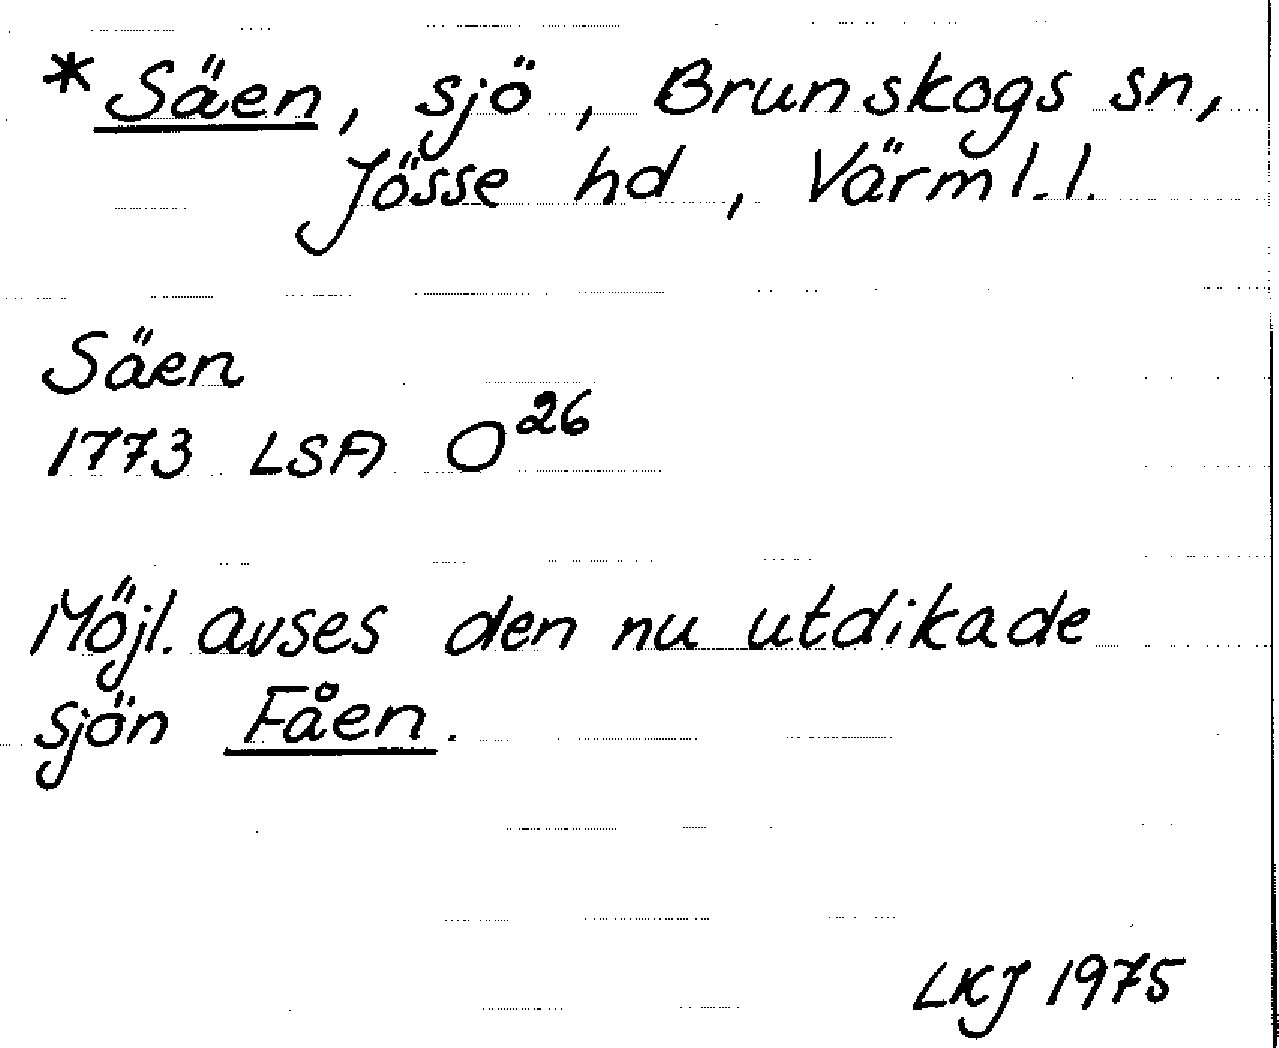 *Säen, sjö, Brunskogs sn,
Jösse hd, Värml. l.
Säen
1773 LSA O26
Möjl. avses den nu utdikade
sjön Fåen.
LKJ 1975